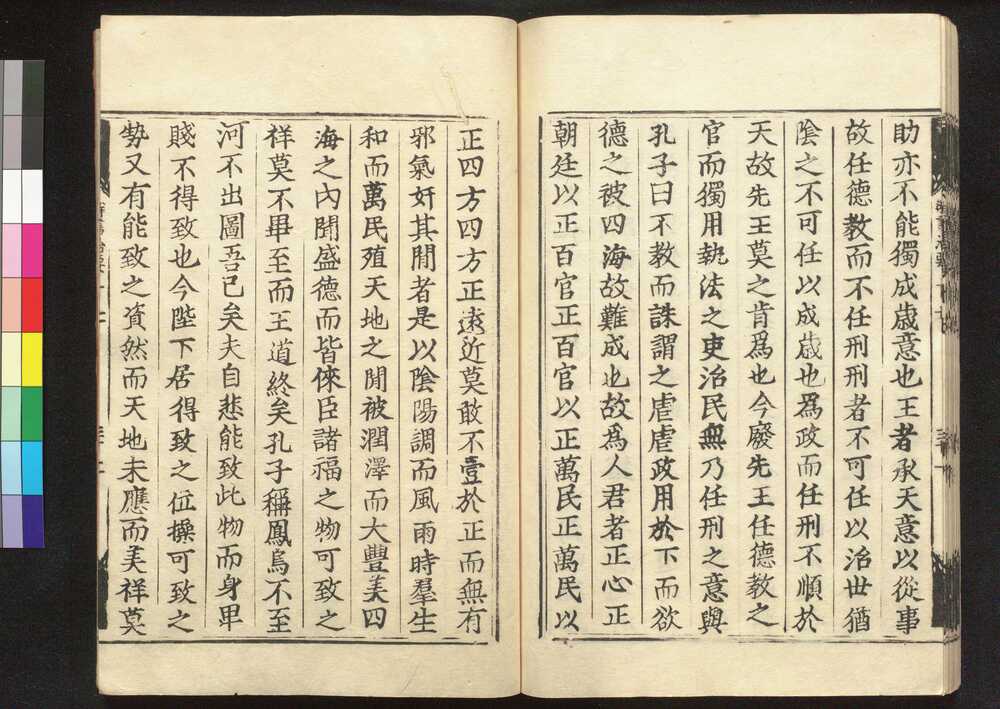 助亦不能獨成歳意也王者承天意以從事
故任德教而不任刑刑者不可任以治世猶
陰之不可任以成歳也爲政而任刑不順於
天故先王莫之肯爲也今廢先王任德教之
官而獨用執法之吏治民無乃任刑之意與
孔子曰不教而誅謂之虐虐政用於下而欲
德之被四海故難成也故爲人君者正心正
朝廷以正百官正百官以正萬民正萬民以
正四方四方正遠近莫敢不壹於正而無有
邪氣奸其閒者是以陰陽調而風雨時羣生
和而萬民殖天地之閒被潤澤而大豐美四
海之內聞盛德而皆倈臣諸福之物可致之
祥莫不畢至而王道終矣孔子稱鳳鳥不至
河不出圖吾已矣夫自悲能致此物而身卑
賤不得致也今陛下居得致之位操可致之
势又有能致之資然而天地未應而美祥莫